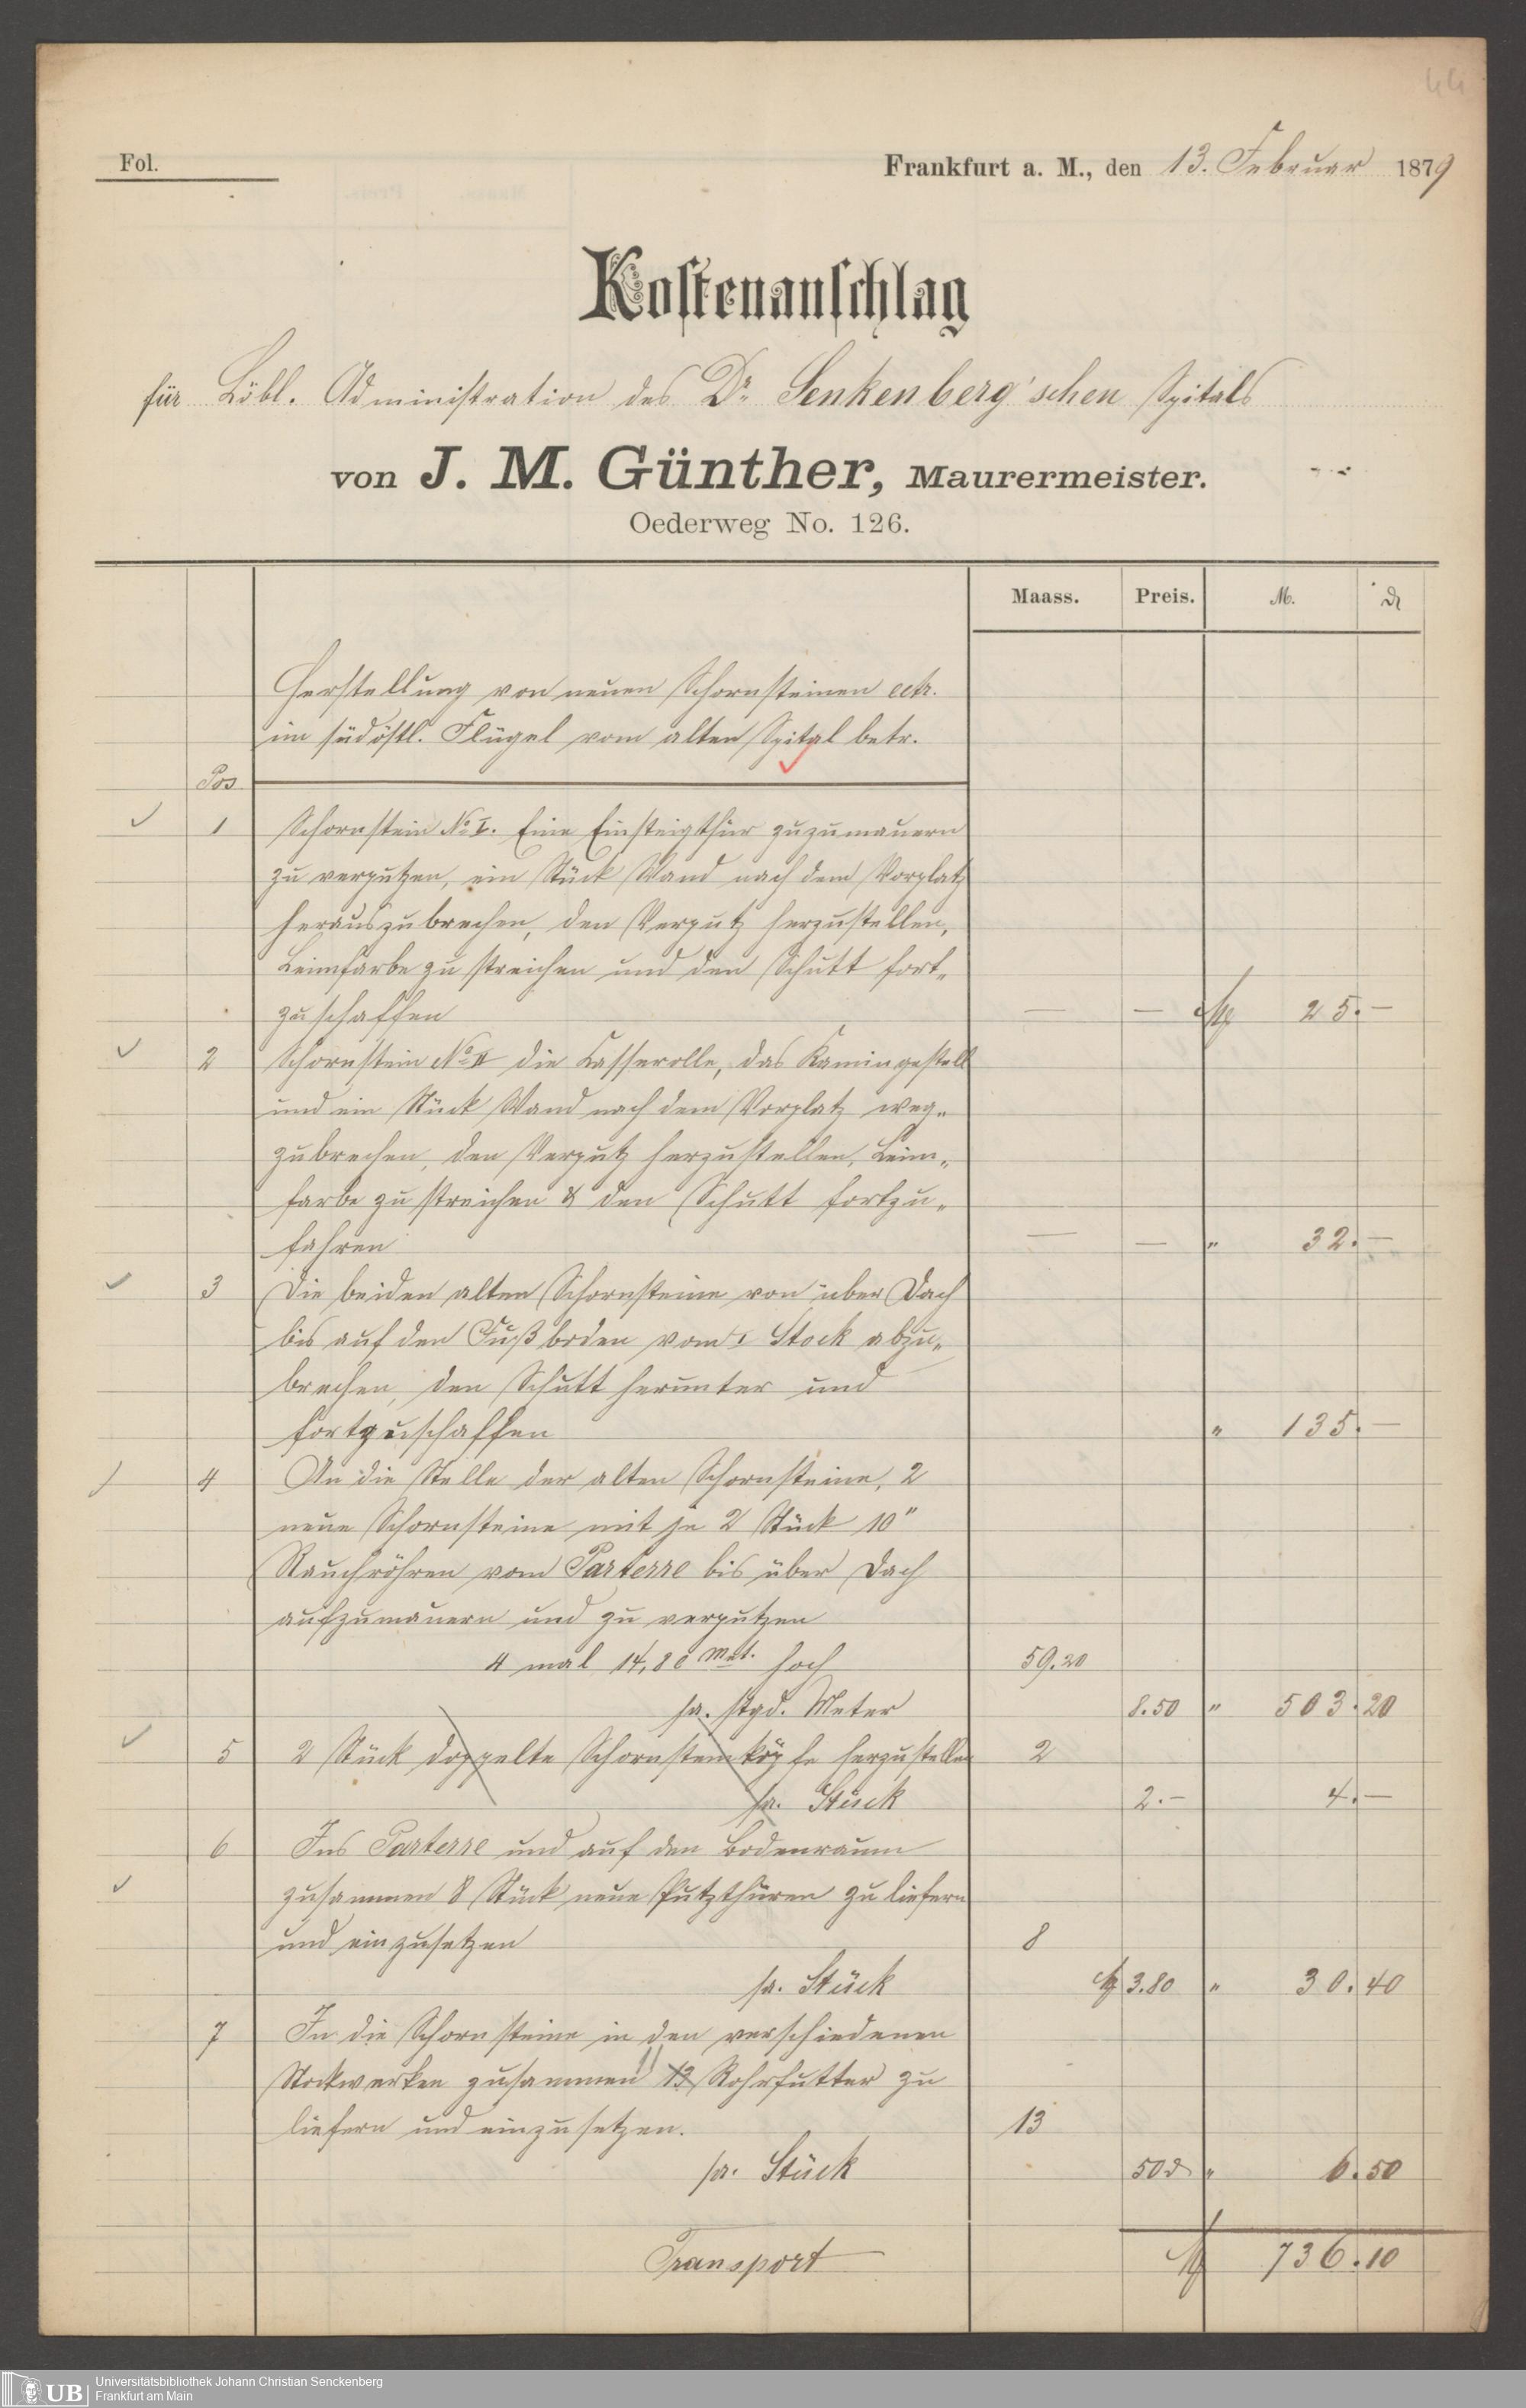 44
Fol.
Frankfurt a. M., den 13. Februar 1879
Kostenanschlag
für Löbl. Administration des Dr. Senkenberg'schen Spitals
von J. M. Günther, Maurermeister.
Oederweg No. 126.
Maass. Preis. M. ₰
Herstellung von neuen Schornsteinen ectr.
im südöstl. Flügel vom alten Spital betr.
Pos
1 Schornstein No I. Eine Einsteigthür zuzumauern
zu verputzen, ein Stück Wand nach dem Vorplatz
herauszubrechen, den Verputz herzustellen,
Leimfarbe zu streichen und den Schutt fort-
zuschaffen — — M 25.—
2 Schornstein No II die Casserolle, das Kamingestell
und ein Stück Wand nach dem Vorplatz weg-
zubrechen, den Verputz herzustellen, Leim-
farbe zu streichen & den Schutt fortzu-
fahren — — " 32.—
3 Die beiden alten Schornsteine von über Dach
bis auf den Fußboden vom 1 Stock abzu-
brechen, den Schutt herunter und
fortzuschaffen " 135.—
4 An die Stelle der alten Schornsteine, 2
neue Schornsteine mit je 2 Stück 10"
Rauchröhren vom Parterre bis über Dach
aufzumauern und zu verputzen
4 mal 14,80 Met. hoch 59.20
sa. stgd. Meter 8.50 " 503.20
5 2 Stück doppelte Schornsteinköpfe herzustellen 2
sa. Stück 2.— 4.—
6 Ins Parterre und auf den Bodenraum
zusammen 8 Stück neue Putzthüren zu liefern
und einzusetzen 8
sa. Stück M 3.80 " 30.40
7 In die Schornsteine in den verschiedenen
Stockwerken zusammen 11 13 Rohrfutter zu
liefern und einzusetzen. 13
sa. Stück 50₰ " 6.50
Transport M 736.10
UB Universitätsbibliothek Johann Christian Senckenberg
Frankfurt am Main